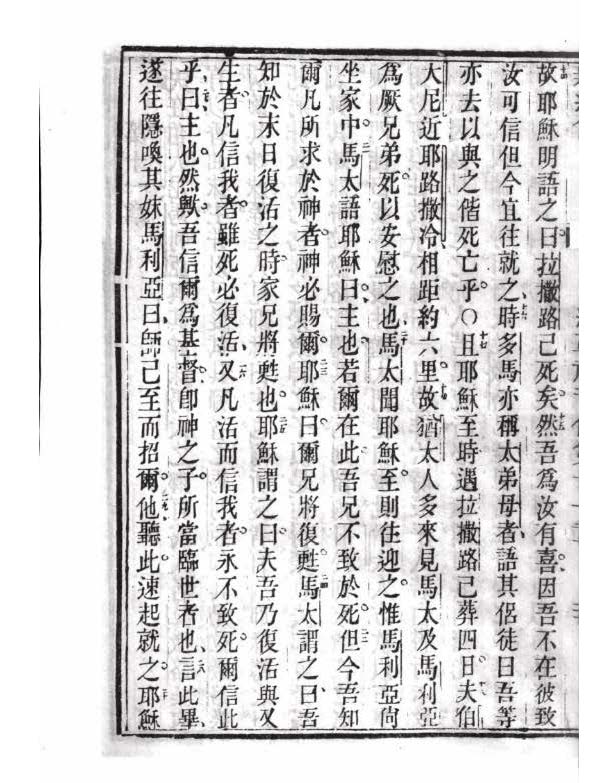 故耶穌明語之曰拉撒路已死矣十五然吾為汝有喜因吾不在彼致
汝可信但今宜往就之十六時多馬亦稱太弟母者語其侶徒曰吾等
亦去以與之偕死亡乎〇十七且耶穌至時遇拉撒路已葬四日十八夫伯
大尼近耶路撒冷相距約六里十九故猶太人多來見馬太及馬利亞
為厥兄弟死以安慰之也二十馬太聞耶穌至則往迎之惟馬利亞尚
坐家中二一馬太語耶穌曰主也若爾在此吾兄不致於死二二但今吾知
爾凡所求於神者神必賜爾二三耶穌曰爾兄將復甦二四馬太謂之曰吾
知於末日復活之時家兄將甦也二五耶穌謂之曰夫吾乃復活與又
生者凡信我者雖死必復活二六又凡活而信我者永不致死爾信此
乎二七曰主也然歟吾信爾為基督卽神之子所當臨世者也二八言此畢
遂往隱喚其妹馬利亞曰師已至而招爾二九他聽此速起就之三十耶穌